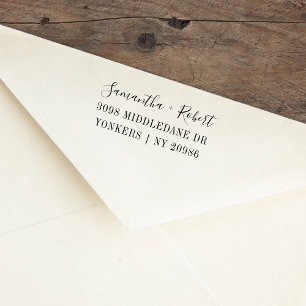 Samantha + Robert
3098 MIDDLEDANE DR
YONKERS | NY 20986